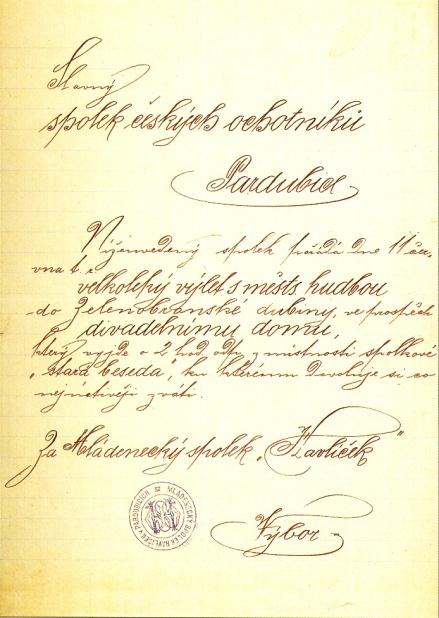 Slavný
spolek českých ochotníků
Pardubice
Výšeuvedený spolek pořádá dne 11 čer-
vna t. r.
velkolepý výlet s městs hudbou
do Zelenobranské dubiny, ve prospěch
divadelnímu domu,
který vyjde o 2 hod odp. z místnosti spolkové
„stará beseda", ku kterému dovoluje si co
nejuctivěji zváti.
Za Mládenecký spolek „Havlíček"
Výbor
MLÁDENECKÝ SPOLEK HAVLÍČEK V PARDUBICÍCH